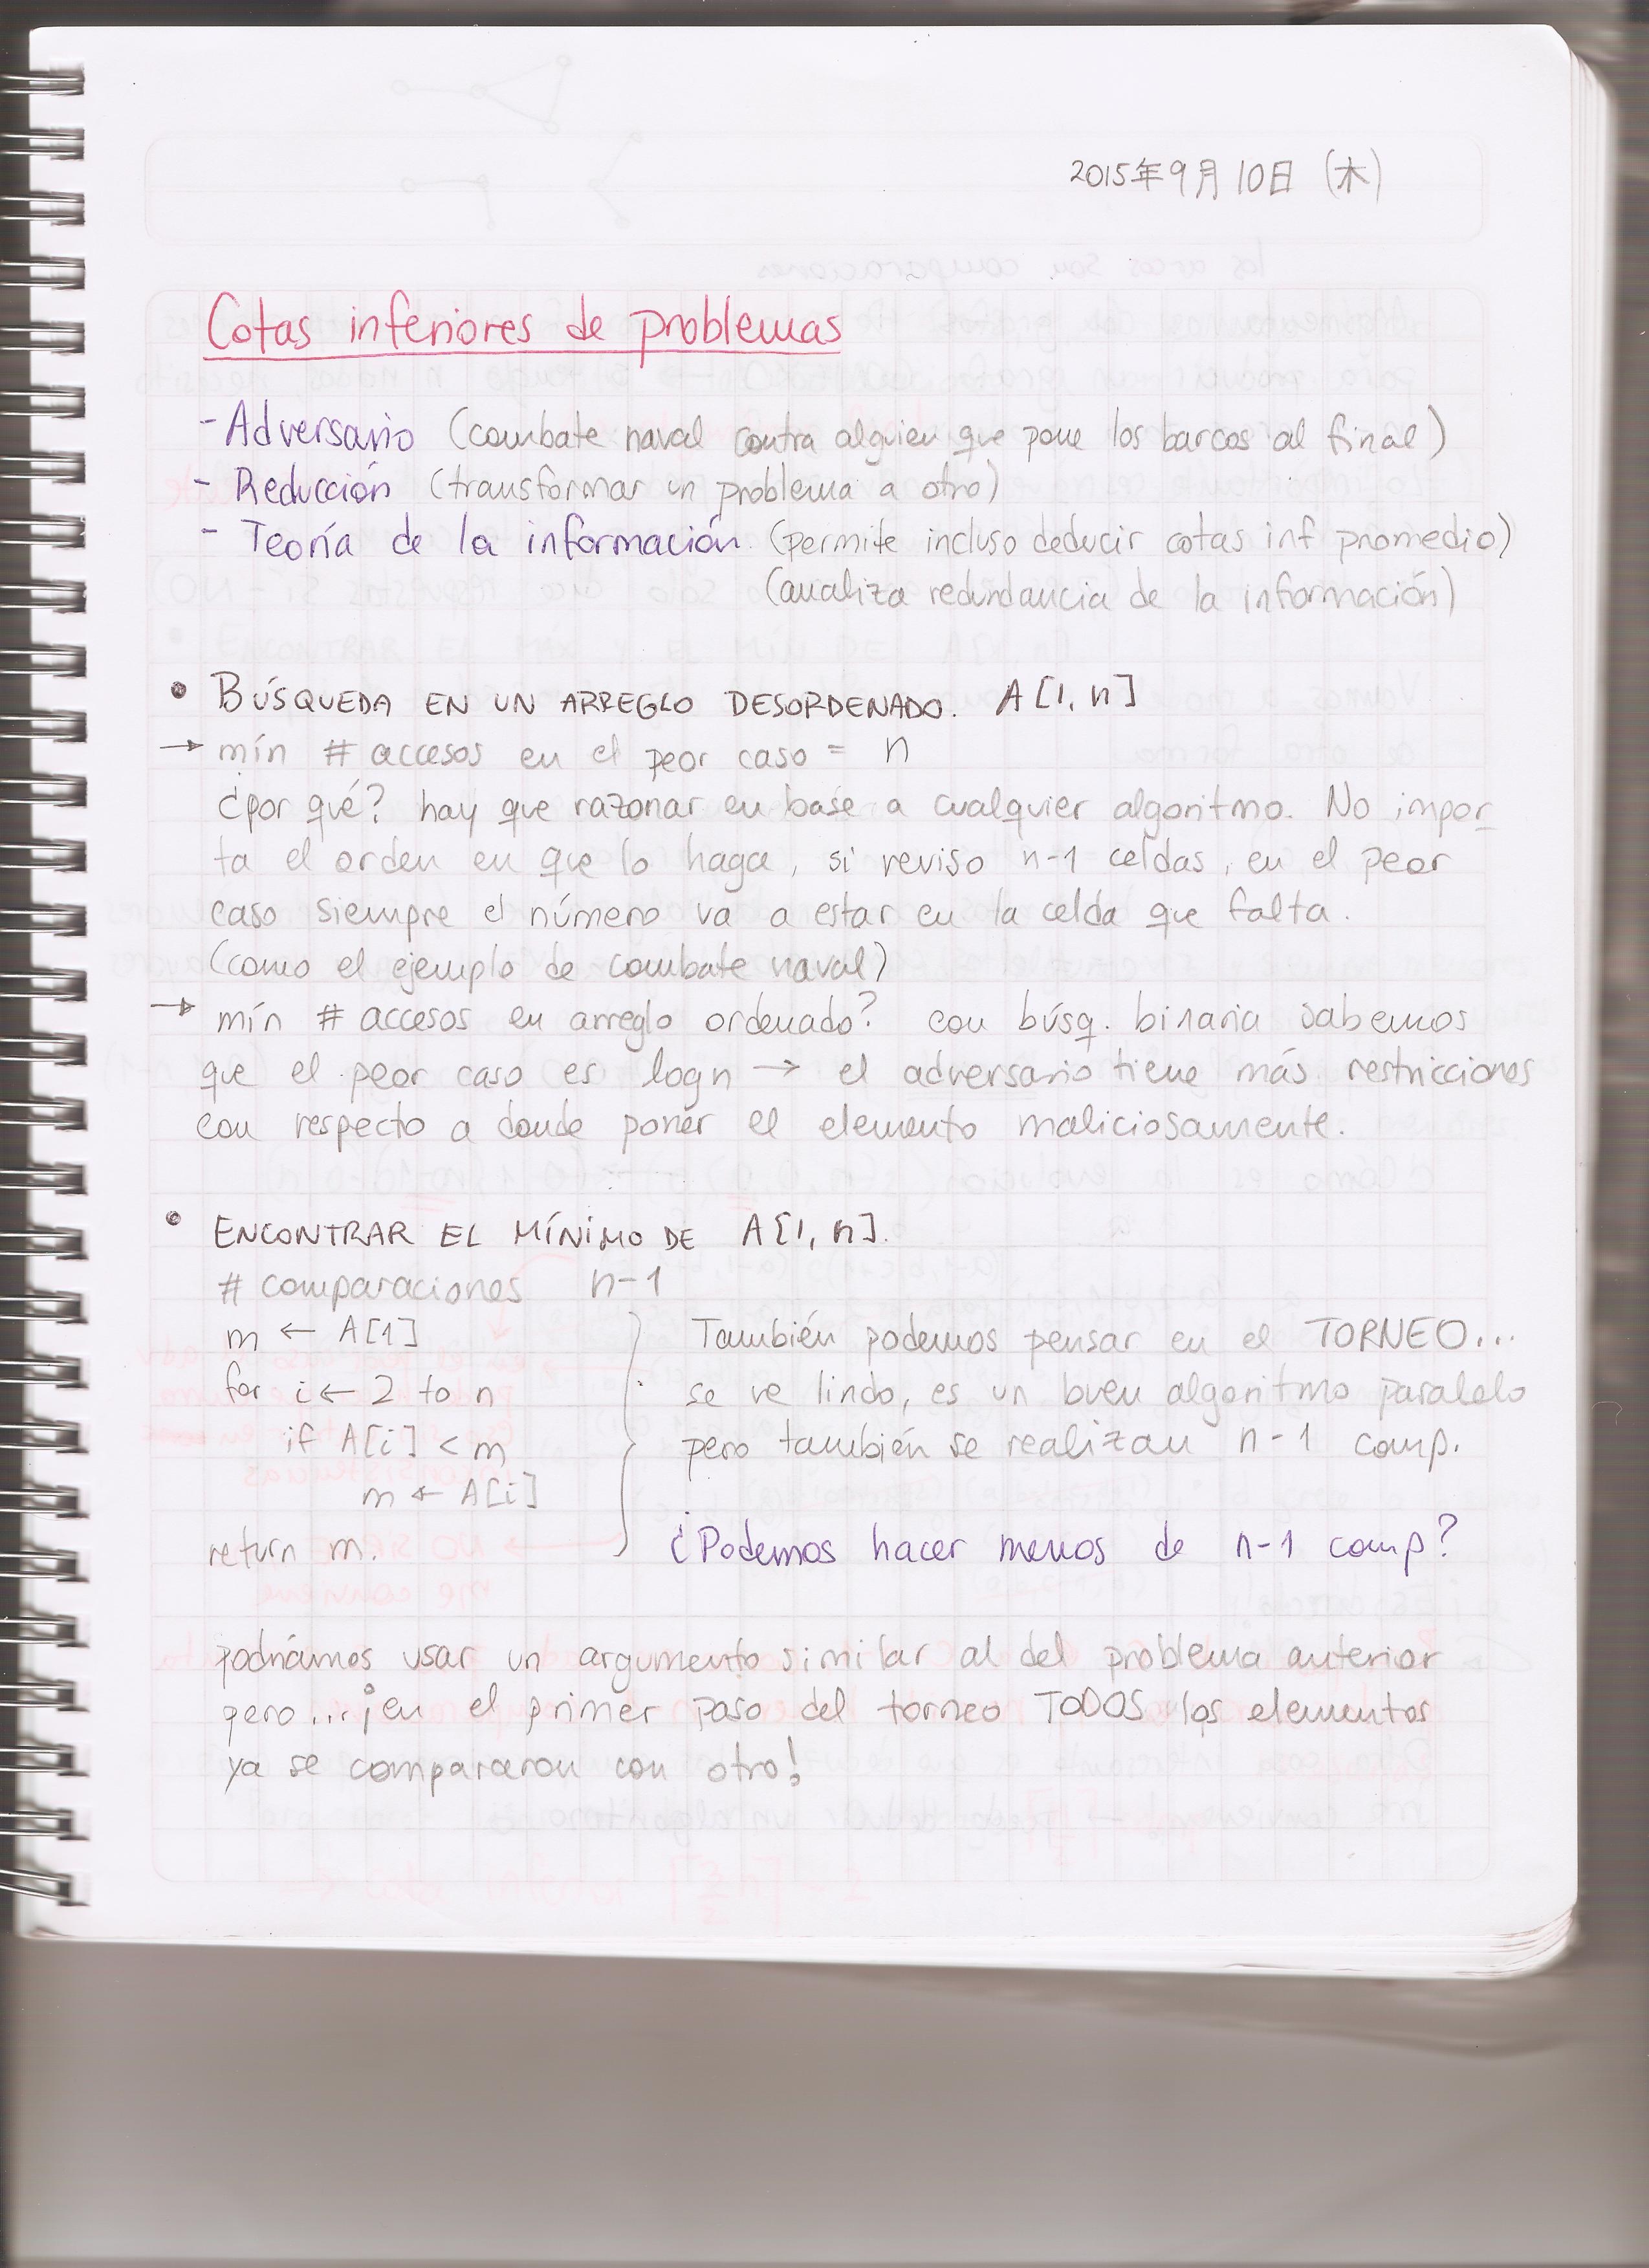 2015年9月10日 (木)
Cotas inferiores de problemas
- Adversario (combate naval contra alguien que pone los barcos al final)
- Reducción (transformar un problema a otro)
- Teoría de la información (permite incluso deducir cotas inf promedio)
(analiza redundancia de la información)
• BÚSQUEDA EN UN ARREGLO DESORDENADO. A[1,n]
→ mín # accesos en el peor caso = n
¿por qué? hay que razonar en base a cualquier algoritmo. No impor_
ta el orden en que lo haga, si reviso n-1 celdas, en el peor
caso siempre el número va a estar en la celda que falta.
(como el ejemplo de combate naval)
→ mín # accesos en arreglo ordenado? con búsq. binaria sabemos
que el peor caso es logn → el adversario tiene más restricciones
con respecto a donde poner el elemento maliciosamente.
• ENCONTRAR EL MÍNIMO DE A[1,n].
# comparaciones n-1
m ← A[1]
for i ← 2 to n
if A[i] < m
m ← A[i]
return m.
También podemos pensar en el TORNEO...
se ve lindo, es un buen algoritmo paralelo
pero también se realizan n-1 comp.
¿Podemos hacer menos de n-1 comp?
podríamos usar un argumento similar al del problema anterior
pero...¡en el primer paso del torneo TODOS los elementos
ya se compararon con otro!